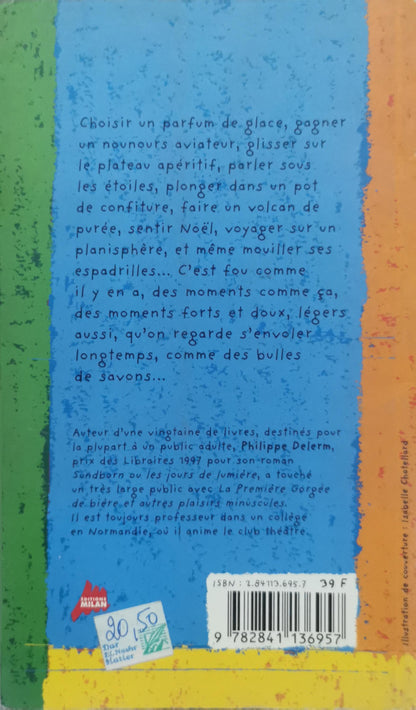 Choisir un parfum de glace, gagner
un nounours aviateur, glisser sur
le plateau apéritif, parler sous
les étoiles, plonger dans un pot
de confiture, faire un volcan de
purée, sentir Noël, voyager sur un
planisphère, et même mouiller ses
espadrilles... C'est fou comme
il y en a, des moments comme ça,
des moments forts et doux, légers
aussi, qu'on regarde s'envoler
longtemps, comme des bulles
de savons...
Auteur d'une vingtaine de livres, destinés pour
la plupart à un public adulte, Philippe Delerm,
prix des Libraires 1997 pour son roman
Sundborn ou les jours de lumière, a touché
un très large public avec La Première Gorgée
de bière et autres plaisirs minuscules.
Il est toujours professeur dans un collège
en Normandie, où il anime le club théâtre.
illustration de couverture : Isabelle Chatellard
ISBN : 2.84113.695.7
39 F
9 782841 136957
EDITIONS
MILAN
20,50
Dar